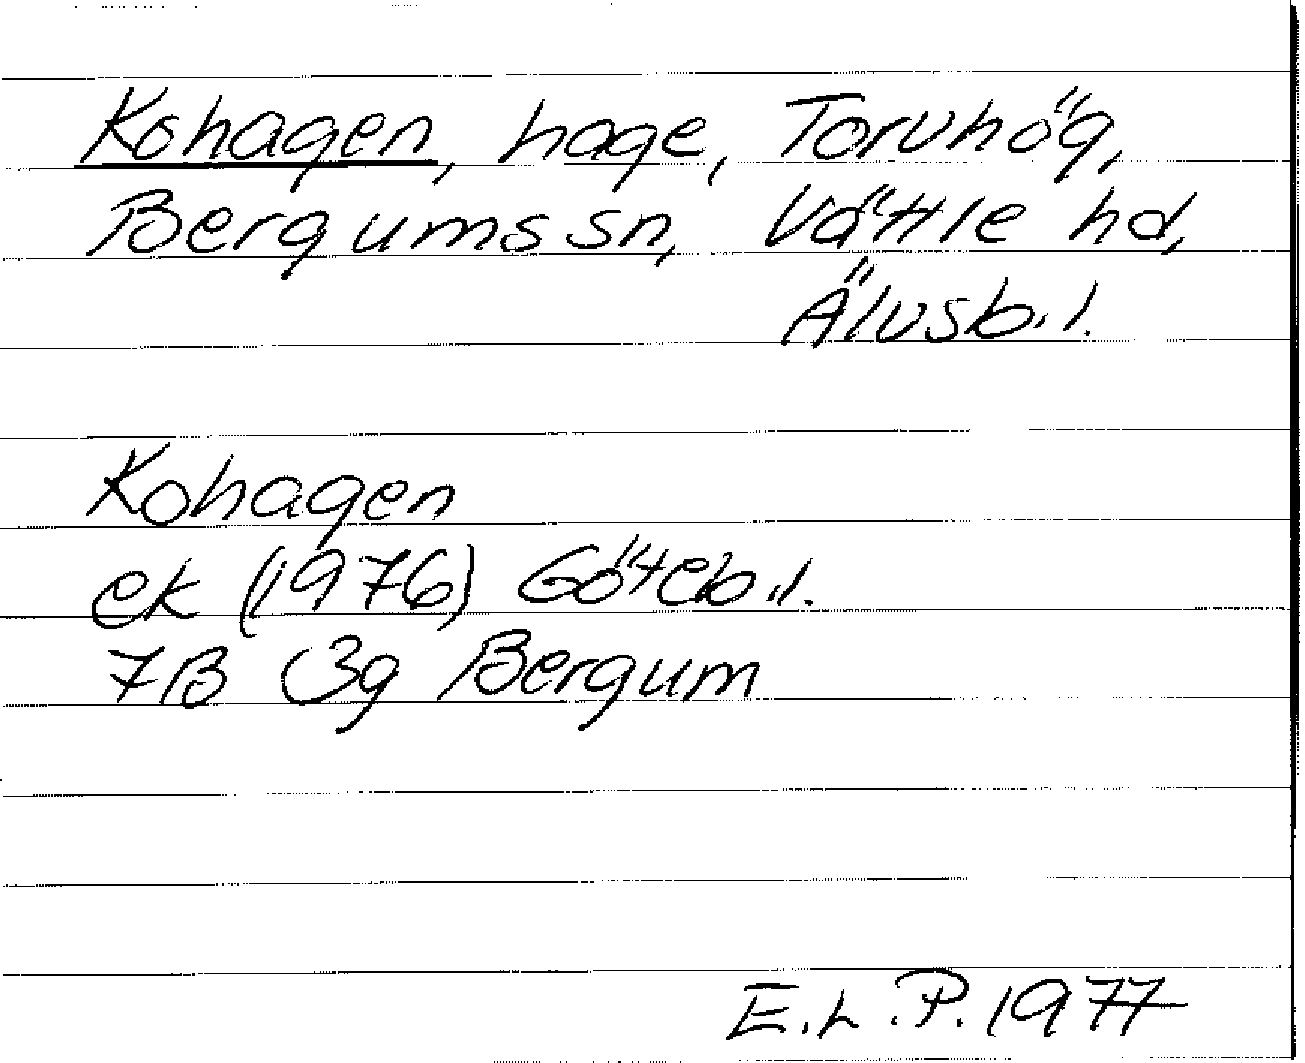 Kohagen, hage, Torvhög,
Bergums sn, Vättle hd,
Älvsb. l.
Kohagen
ek (1976) Göteb. l.
7B 3g Bergum
E.L.P. 1977